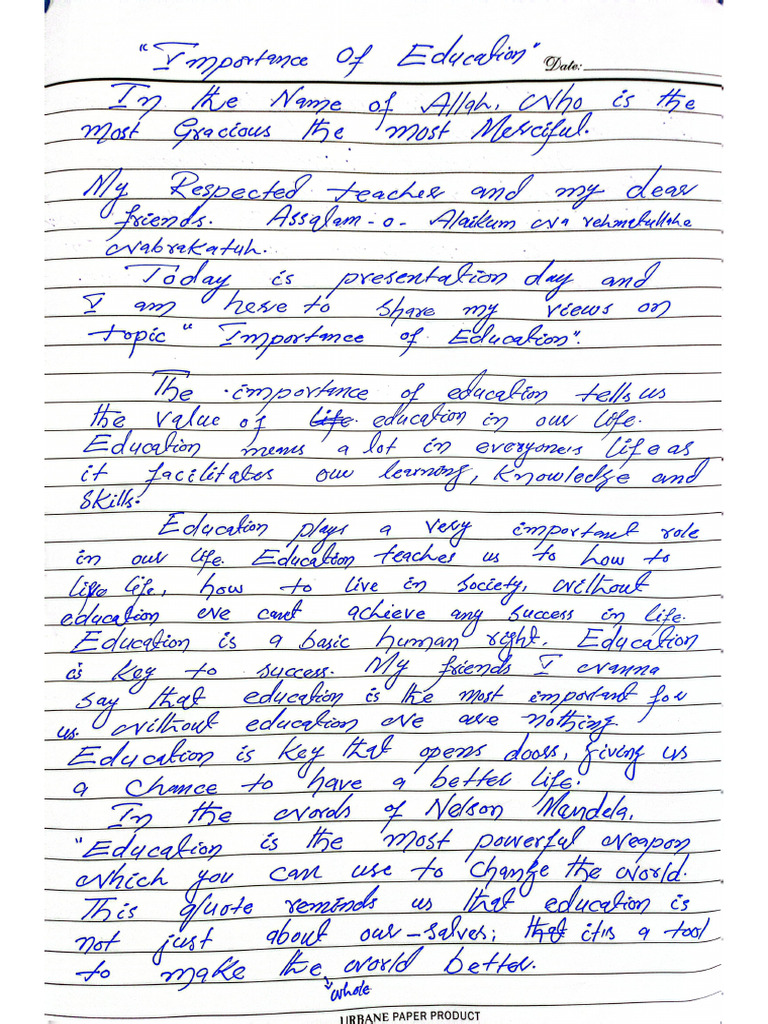 "Importance Of Education" Date:
In the Name of Allah, Who is the
most Gracious the most Merciful.
My Respected teacher and my dear
friends. Assalam-o-Alaikum wa rehmatullahe
wabrakatuh.
Today is presentation day and
I am here to share my views on
topic "Importance of Education".
The importance of education tells us
the value of life education in our life.
Education means a lot in everyone's life as
it facilitates our learning, knowledge and
skills.
Education plays a very important role
in our life. Education teaches us to how to
live life, how to live in society, without
education we cant achieve any success in life.
Education is a basic human right. Education
is key to success. My friends I wanna
say that education is the most important for
us. without education we are nothing
Education is key that opens doors, giving us
a chance to have a better life.
In the words of Nelson Mandela,
"Education is the most powerful weapon
which you can use to change the world.
This quote reminds us that education is
not just about our-salves; that it is a tool
to make the world better.
whole
URBANE PAPER PRODUCT